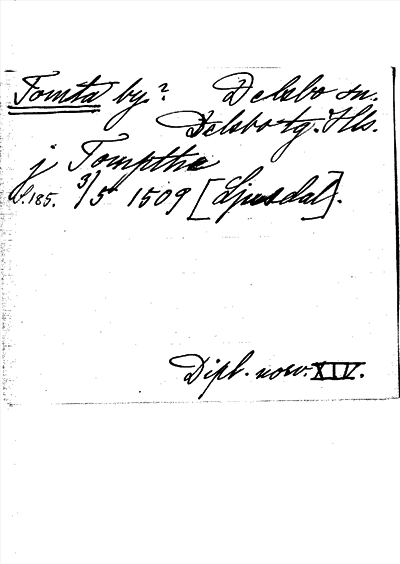 Tomta by.? Delsbo sn.
Delsbo tg. Hls.
j Tompthe
S. 185. 3/5 1509 [Ljusdal].
Dipl. norv. XIV.